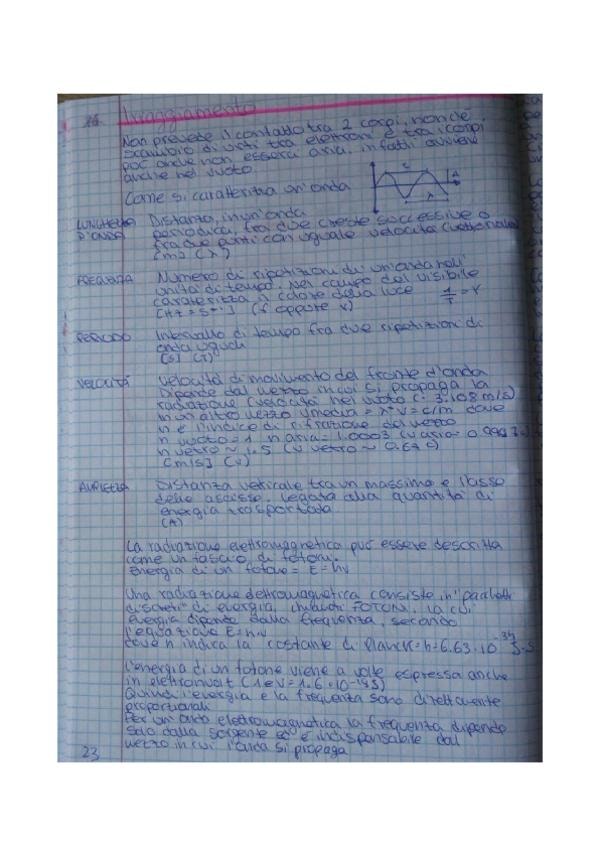 Irraggiamento
Non prevede il contatto tra 2 corpi, non c'è
scambio di urti tra elettroni e tra i corpi
può anche non esserci aria, infatti avviene
anche nel vuoto.
Come si caratterizza un'onda
LUNGHEZZA D'ONDA Distanza, in un'onda
periodica, fra due creste successive o
fra due punti con uguale velocità (vettoriale)
[m] (λ)
FREQUENZA Numero di ripetizioni di un'onda nell'
unità di tempo. Nel campo del visibile
caratterizza il colore della luce 1/T = ν
[Hz = s-1] (f oppure ν)
PERIODO Intervallo di tempo fra due ripetizioni di
onda uguali
[s] (T)
VELOCITÀ Velocità di movimento del fronte d'onda
Dipende dal mezzo in cui si propaga la
radiazione (velocità nel vuoto c: 3·108 m/s)
in un altro mezzo vmedia = λ·ν = c/n dove
n è l'indice di rifrazione del mezzo
n vuoto = 1 n aria = 1.0003 (v aria = 0.9997 c)
n vetro ~ 1.5 (v vetro ~ 0.67 c)
[m/s] (v)
AMPIEZZA Distanza verticale tra un massimo e l'asse
delle ascisse. Legata alla quantità di
energia trasportata
(A)
La radiazione elettromagnetica può essere descritta
come un fascio di fotoni.
Energia di un fotone = E = hν
Una radiazione elettromagnetica consiste in "pacchetti
discreti" di energia, chiamati FOTONI, la cui
energia dipende dalla frequenza, secondo
l'equazione E = h·ν
dove h indica la costante di Planck = h = 6.63·10⁻³⁴ J·s
L'energia di un fotone viene a volte espressa anche
in elettronvolt (1 eV = 1.6·10-19 J)
Quindi l'energia e la frequenza sono direttamente
proporzionali
Per un'onda elettromagnetica la frequenza dipende
solo dalla sorgente ed è indispensabile dal
mezzo in cui l'onda si propaga
23